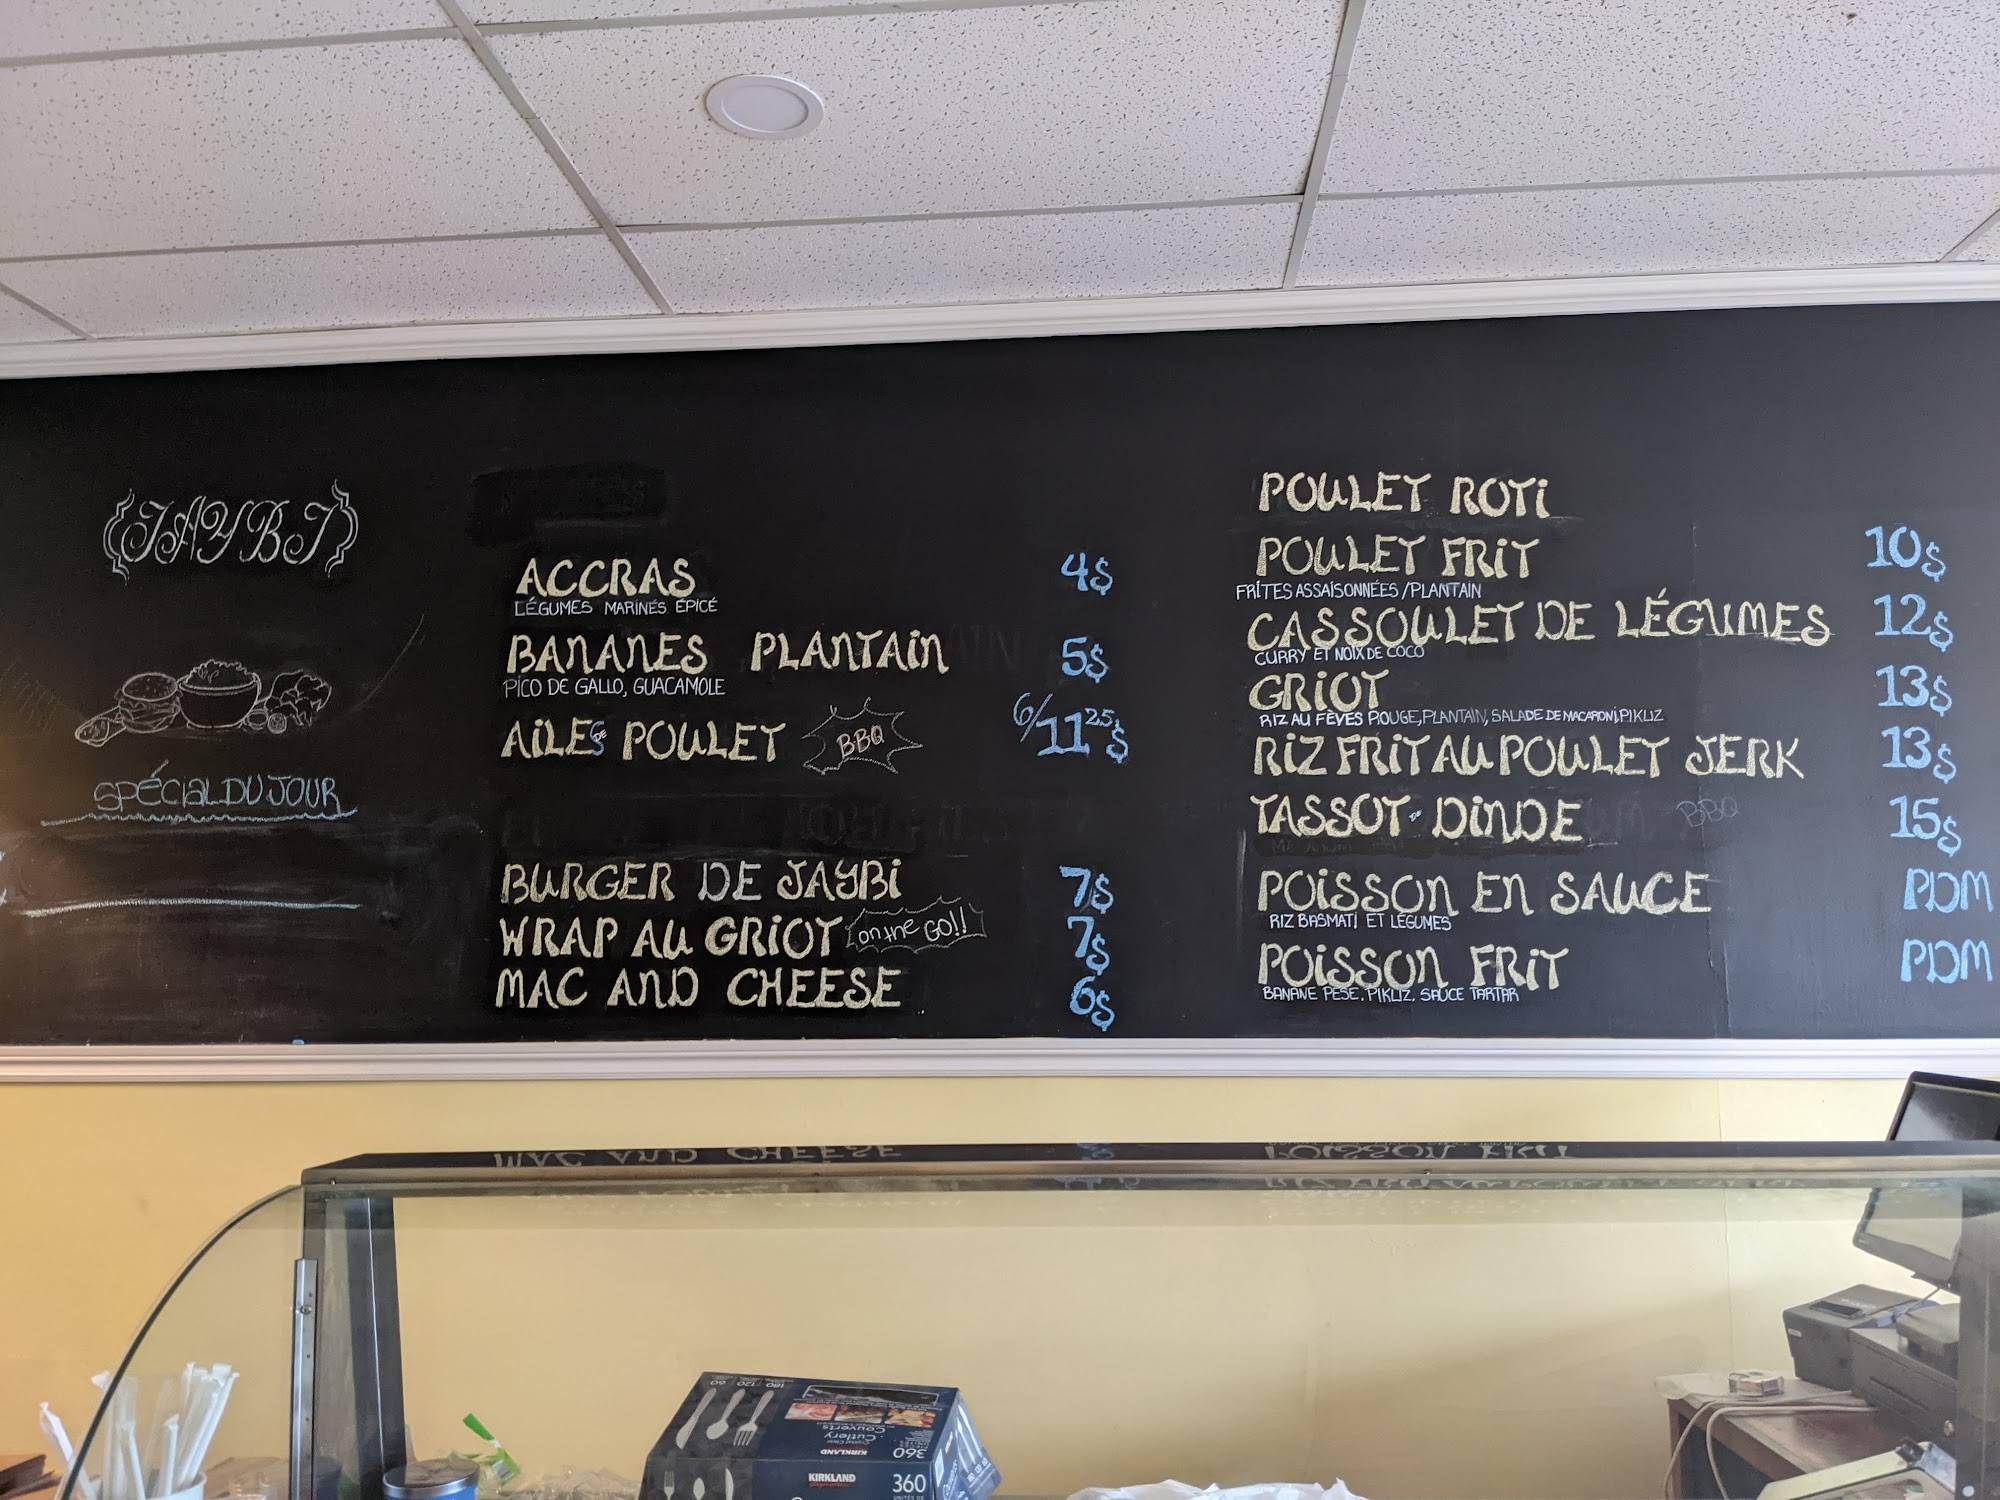 JAYBJ
SPÉCIAL DU JOUR
ACCRAS 4$
LÉGUMES MARINÉS ÉPICÉ
BANANES PLANTAIN 5$
PICO DE GALLO, GUACAMOLE
AILES DE POULET BBQ 6/11 25$
BURGER DE JAYBI 7$
WRAP AU GRIOT on the GO!! 7$
MAC AND CHEESE 6$
POULET ROTI
POULET FRIT 10$
FRITES ASSAISONNÉES/PLANTAIN
CASSOULET DE LÉGUMES 12$
CURRY ET NOIX DE COCO
GRIOT 13$
RIZ AU FÈVES ROUGE, PLANTAIN, SALADE DE MACARONI, PIKLIZ
RIZ FRIT AU POULET JERK 13$
TASSOT DE DINDE BBQ 15$
POISSON EN SAUCE PDM
RIZ BASMATI ET LÉGUMES
POISSON FRIT PDM
BANANE PESE, PIKLIZ, SAUCE TARTAR
180 120 60
Couverts
Cutlery
KIRKLAND
360
KIRKLAND
360